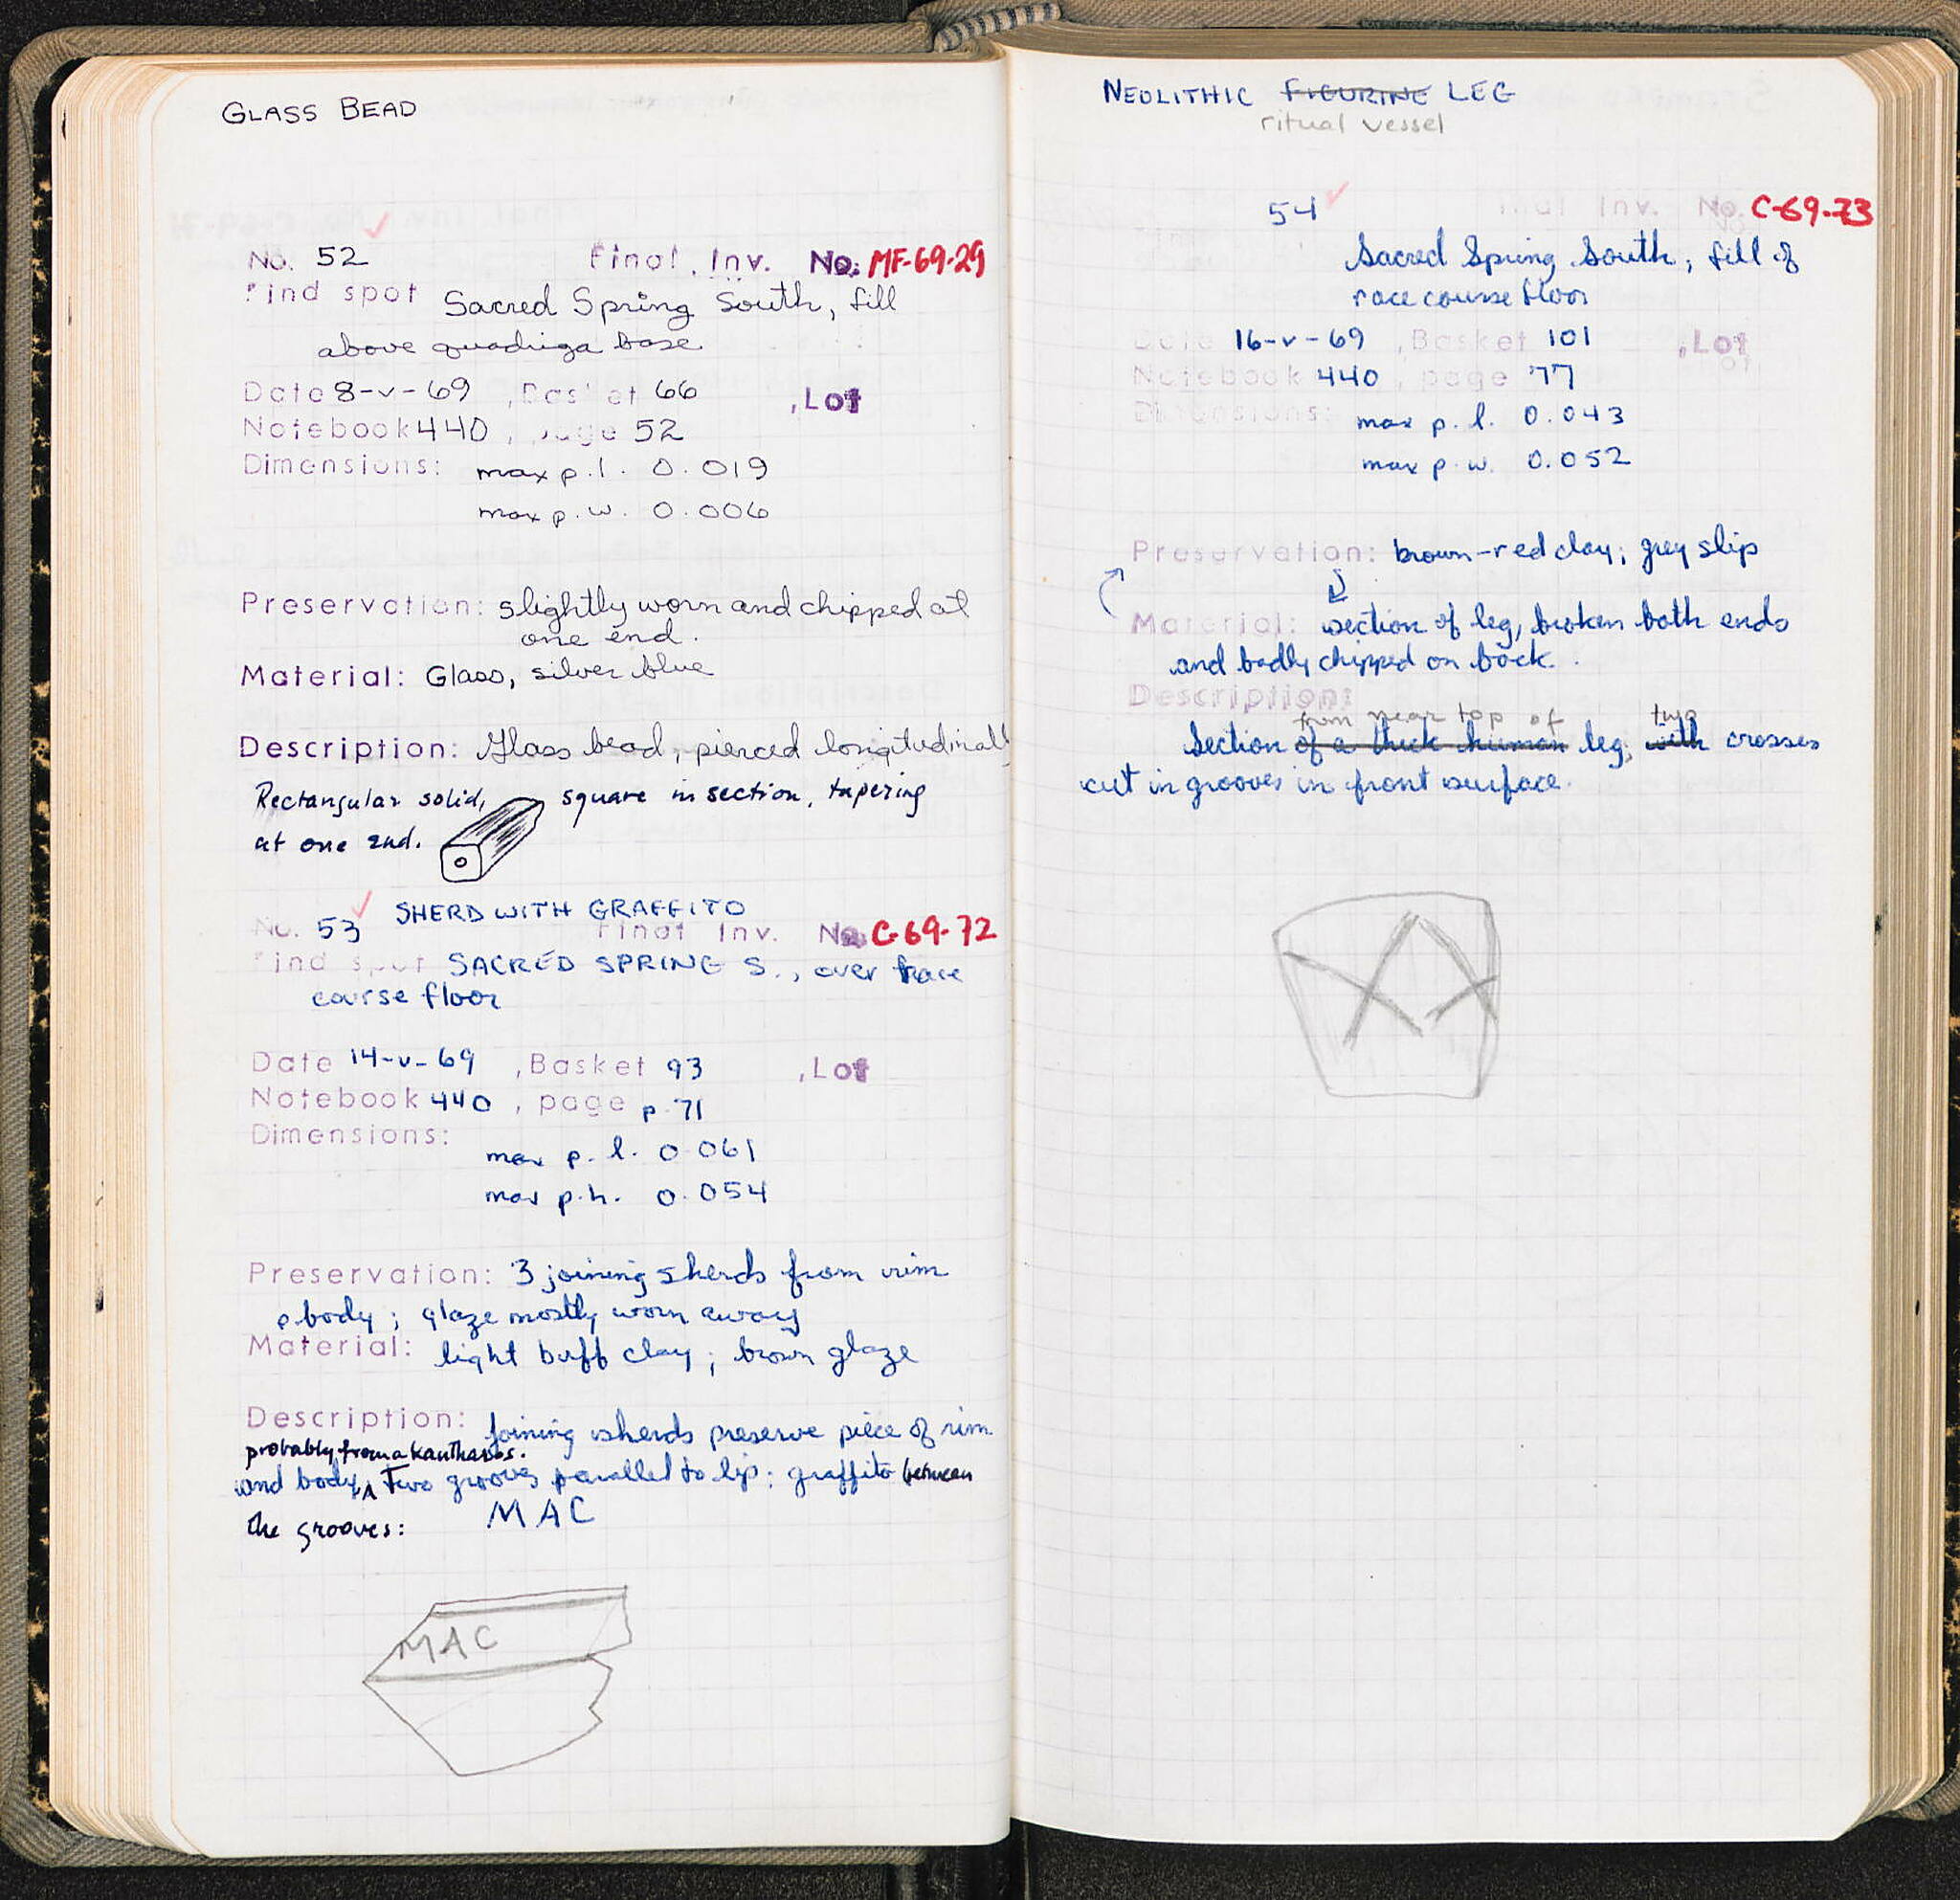 GLASS BEAD
No. 52 Final Inv. No. MF-69-29
Find spot Sacred Spring South, fill
above quadriga base
Date 8-v-69 , Basket 66 , Lot
Notebook 440 , page 52
Dimensions: max p. l. 0.019
max p. w. 0.006
Preservation: slightly worn and chipped at
one end.
Material: Glass, silver blue
Description: Glass bead, pierced longitudinally
Rectangular solid, square in section, tapering
at one end.
SHERD WITH GRAFFITO
No. 53 Final Inv. No. C-69-72
Find spot SACRED SPRING S., over race
course floor
Date 14-v-69 , Basket 93 , Lot
Notebook 440 , page p. 71
Dimensions:
max p. l. 0.061
max p. h. 0.054
Preservation: 3 joining sherds from rim
& body; glaze mostly worn away
Material: light buff clay; brown glaze
Description: Joining sherds preserve piece of rim
probably from a kantharos.
and body, Two grooves parallel to lip; graffito between
the grooves: MAC
MAC
NEOLITHIC FIGURINE LEG
ritual vessel
54 Final Inv. No. C-69-73
Sacred Spring South, fill of
race course floor
Date 16-v-69 , Basket 101 , Lot
Notebook 440 , page 77
Dimensions: max p. l. 0.043
max p. w. 0.052
Preservation: brown-red clay; grey slip
Material: section of leg, broken both ends
and badly chipped on back.
Description:
from near top of two
Section of a thick human leg; with crosses
cut in grooves in front surface.